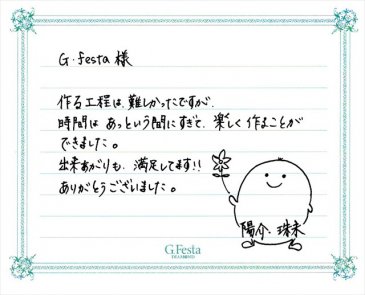 G.festa 様
作る工程は、難しかったですが、
時間は あっという間にすぎて、楽しく作ることが
できました。
出来あがりも、満足してます!!
ありがとうございました。
陽介 珠未
G.Festa
DIAMOND